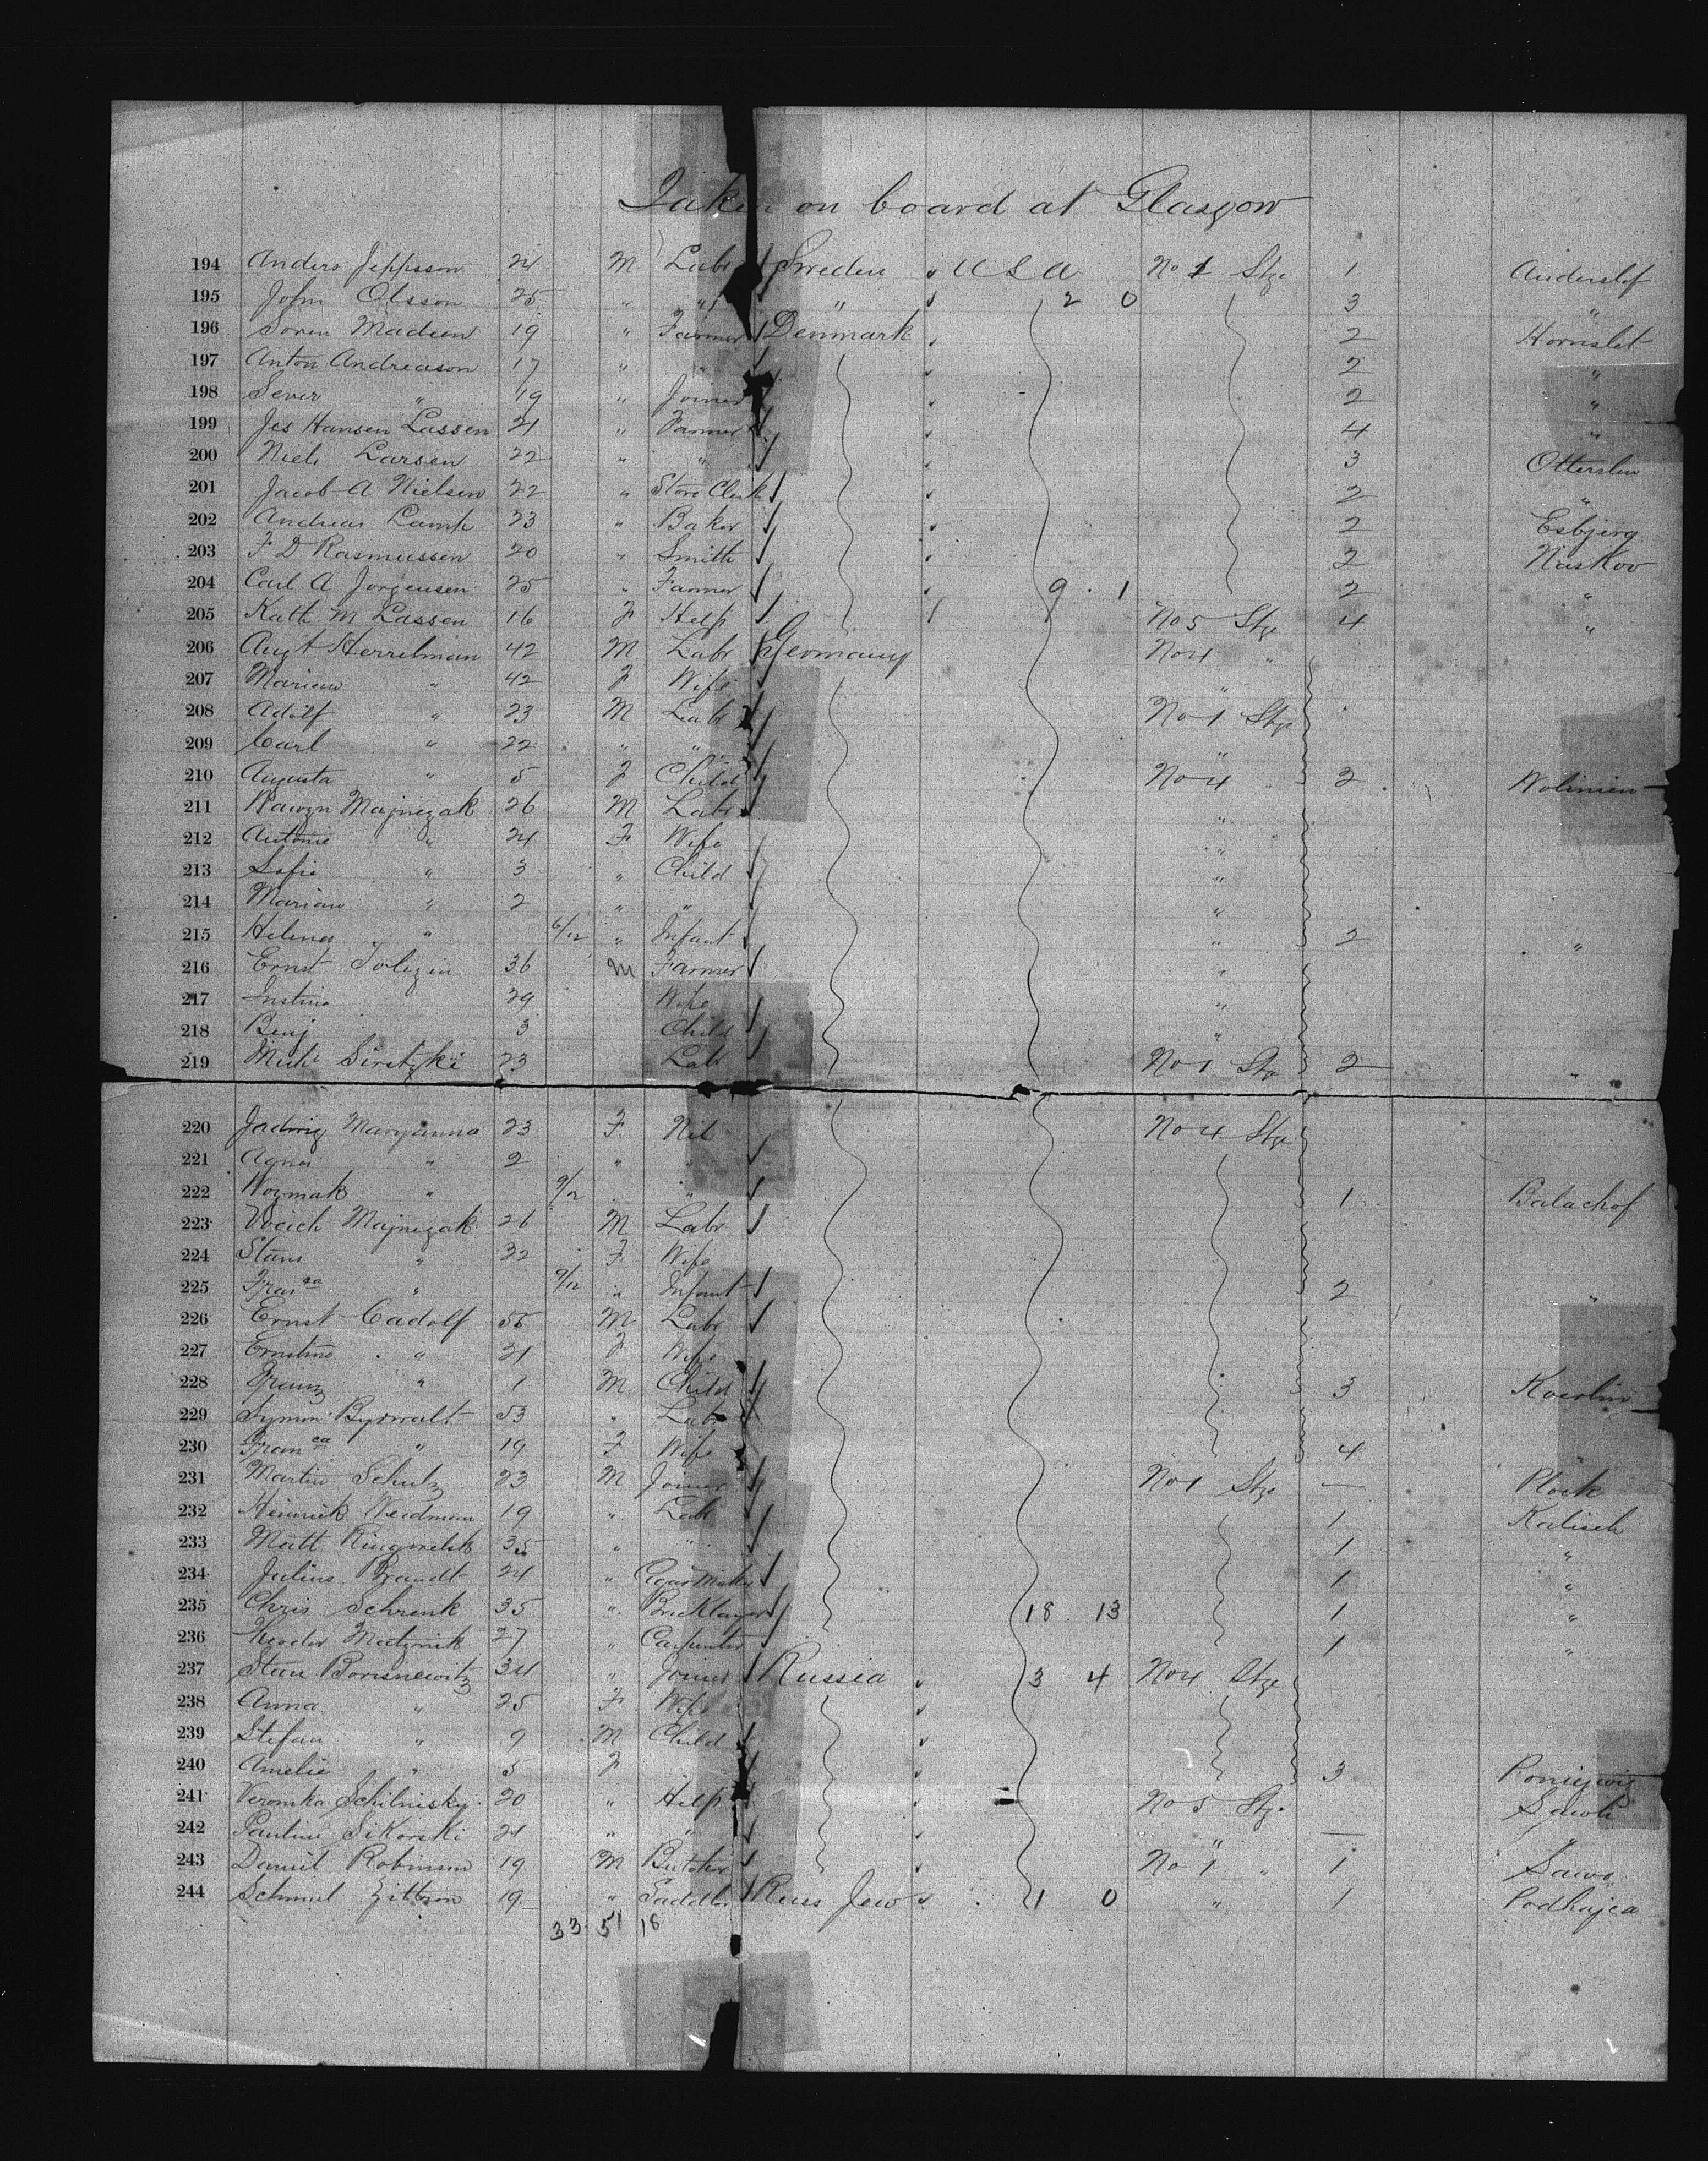 Taken on board at Glasgow
194 Anders Jeppsson 24 M Labr Sweden USA No 1 Stge 1 Anderslof
195 John Olsson 25 " " " 2 0 3 "
196 Soren Madsen 19 " Farmer Denmark 2 Hornslet
197 Anton Andreason 17 " " 2 "
198 Sever " 19 " Joiner 2 "
199 Jes Hansen Lassen 21 " Farmer 4 "
200 Niels Larsen 22 " " 3
201 Jacob A Nielsen 22 " Store Clerk 2 "
202 Andreas Lamp 23 " Baker 2 Esbjerg
203 F D Rasmussen 20 " Smith 2 Naskov
204 Carl A Jorgensen 25 " Farmer 9 . 1 2 "
205 Kath M Lassen 16 F Help No 5 Stge 4 "
206 Augt Herrelman 42 M Labr Germany No 4 "
207 " 42 F Wife "
208 Adolf " 23 M Labr No 1 Stge
209 Carl " 22 " " "
210 Augusta " 5 F Child No 4 2 Wolinien
211 Majnezak 26 M Labr "
212 Antonie " 24 F Wife "
213 Sofie " 3 " Child "
214 " 2 " " "
215 Helena " 6/12 " Infant " 2 "
216 Ernst 36 M Farmer "
217 29 Wife "
218 Benj 3 Child "
219 Mich 23 Labr No 1 Stg 2 "
220 Jadwig Maryanna 23 F. Nil No 4 Stge
221 Agnes " 2 " "
222 Wozmak " 9/12 " 1 Balachof
223 Majnezak 26 M Labr
224 Stans " 22 F. Wife
225 Fran ca " 9/12 " Infant 2 "
226 Ernst Cadolf 55 M Labr
227 Ernstine " 21 F Wife
228 Franz " 1 M. Child 3
229 Symon 53 " Labr
230 Fran ca " 19 F Wife 4 "
231 Martin Schulz 23 M Joiner No 1 Stge — Plock
232 Heinrick Weidman 19 " Labr 1 Kalisch
233 Matt 35 " " 1 "
234 Julius Brandt 24 " Cigar Maker 1 "
235 Chris Schrenk 35 " Bricklayer 18 . 13 1 "
236 Theodor 27 " Carpenter 1 "
237 Stan 34 " Joiner Russia 3 4 No 4 Stge
238 Anna " 25 F. Wife
239 Stefan " 9 M Child
240 Amelie " 5 F 3
241 Veronika Schilnisky 20 " Help No 5 Stge
242 Pauline Sikorski 21 " " " —
243 Daniel Robinson 19 M Butcher No 1 " 1
244 Schmul 19 " Saddler Russ Jew 1 0 " 1 Podhajca
33 51 18